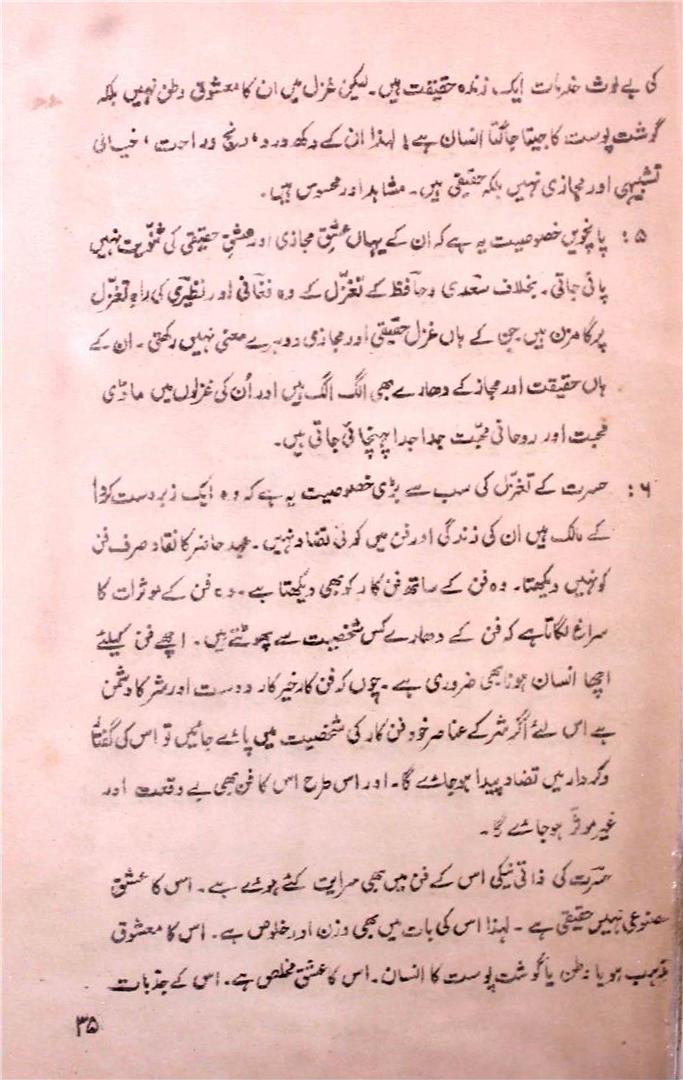 کی بے لوث خدمات ایک زندہ حقیقت ہیں۔ لیکن غزل میں ان کا معشوق وطن نہیں بلکہ
گوشت پوست کا جیتا جاگتا انسان ہے! لہٰذا ان کے دکھ درد، رنج و راحت، خیالی
تشبیہی اور مجازی نہیں بلکہ حقیقی ہیں۔ مشاہد اور محسوس ہیں۔
۵: پانچویں خصوصیت یہ ہے کہ ان کے یہاں عشقِ مجازی اور عشقِ حقیقی کی ثنویت نہیں
پائی جاتی۔ بخلاف سعدی و حافظ کے تغزّل کے وہ فغانی اور نظیری کی راہِ تغزّل
پر گامزن ہیں جن کے ہاں غزل حقیقی اور مجازی دوہرے معنی نہیں رکھتی۔ ان کے
ہاں حقیقت اور مجاز کے دھارے بھی الگ الگ ہیں اور اُن کی غزلوں میں مادّی
محبت اور روحانی محبّت جدا جدا پہنچائی جاتی ہیں۔
۶: حسرت کے تغزّل کی سب سے بڑی خصوصیت یہ ہے کہ وہ ایک زبردست کردا
کے مالک ہیں ان کی زندگی اور فن میں کوئی تضاد نہیں۔ عہد حاضر کا نقاد صرف فن
کو نہیں دیکھتا۔ وہ فن کے ساتھ فن کار کو بھی دیکھتا ہے۔ وہ فن کے موثرات کا
سراغ لگاتا ہے کہ فن کے دھارے کس شخصیت سے پھوٹتے ہیں۔ اچھے فن کیلئے
اچھا انسان ہونا بھی ضروری ہے۔ چوں کہ فن کار خیر کار دوست اور شر کا دشمن
ہے اس لئے اگر شر کے عناصر خود فن کار کی شخصیت میں پائے جائیں تو اس کی گفتا
و کردار میں تضاد پیدا ہو جائے گا۔ اور اس طرح اس کا فن بھی بے وقعت اور
غیر موثر ہو جائے گا۔
حسرت کی ذاتی نیکی اس کے فن میں بھی سرایت کئے ہوئے ہے۔ اس کا عشق
مصنوعی نہیں حقیقی ہے۔ لہذا اس کی بات میں بھی وزن اور خلوص ہے۔ اس کا معشوق
مذہب ہو یا وطن یا گوشت پوست کا انسان۔ اس کا عشق مخلص ہے۔ اس کے جذبات
۳۵